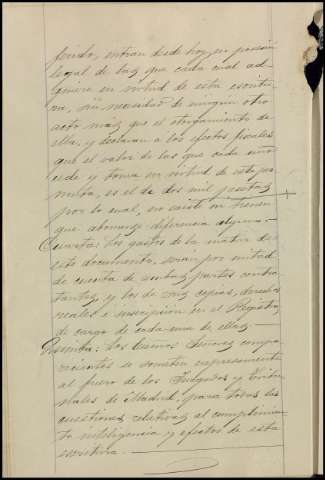 ferido, entran desde hoy en posesión
legal de las que cada cual ad-
quiere en virtud de esta escritu-
ra, sin necesidad de ningún otro
acto más que el otorgamiento de
ella, y declaran a los efectos fiscales
que el valor de las que cada uno
cede y toma en virtud de esta per-
muta, es el de dos mil pesetas
por lo cual, no existe ni tienen
que abonarse diferencia alguna.-
Cuarta: Los gastos de la matriz de
este documento, serán por mitad
de cuenta de ambas partes contra-
tantes, y los de sus copias, derechos
reales e inscripción en el Registro,
de cargo de cada una de ellas.-
Los Excmos. Señores compa-
recientes se someten expresamente
al fuero de los Juzgados y Tribu-
nales de Madrid, para todas las
cuestiones relativas al cumplimien-
to inteligencia y efectos de esta
escritura.-